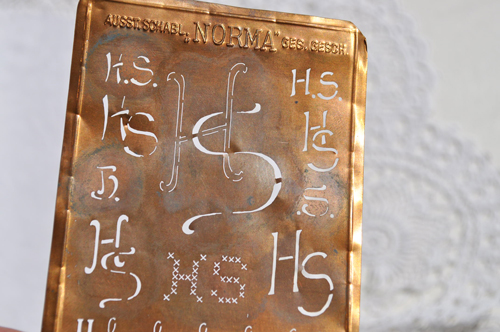 AUSST. SCHABL. „NORMA" GES. GESCH.
H.S. HS H.S.
HS HS
H. S.
HS HS HS